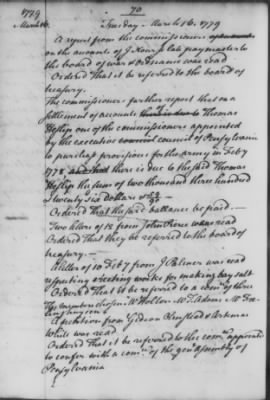 1779
70
March 16.
Tuesday March 16. 1779
A report from the commissioners
on the accounts of J. late paymaster to
the board of war & Ordnance was read
Ordered that it be referred to the board of
treasury.
The commissioners farther report that on a
settlement of accounts Thomas
one of the commissioners appointed
by the executive council of Pensylvania
to purchase provisions for the army in Feby
1778 there is due to the said Thomas
the sum of two thousand three hundred
& twenty six dollars
Ordered that the said ballance be paid.
Two letters of 15 from John Pierce was read
Ordered that they be referred to the board of
treasury.
A letter of 10 Feby from J Palmer was read
respecting erecting works for making bay salt
Ordered that it be referred to a comee of three
The members chosen Mr
A petition from Gideon &
White was read
Ordered that it be referred to the comee appointed
to confer with a comee of the genl assembly of
Pensylvania